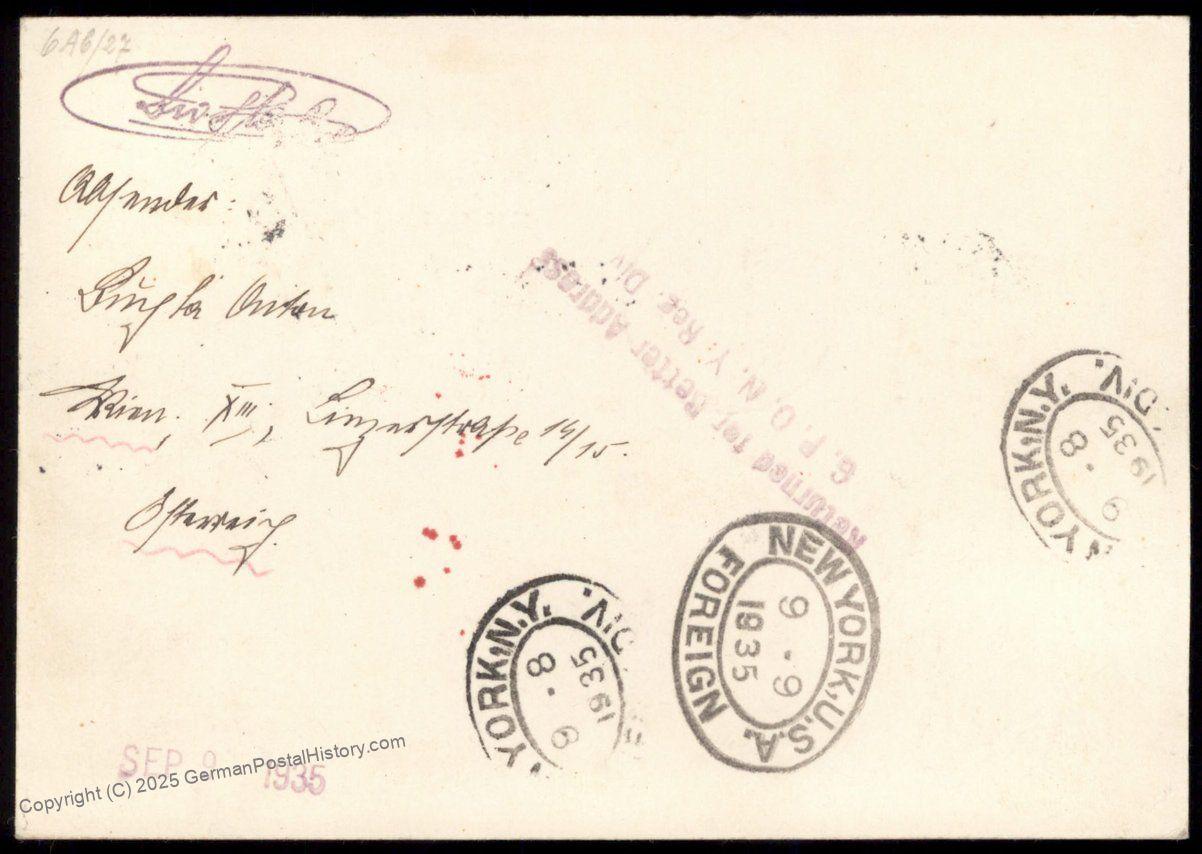 6A6/27
Absender:
Anton
Wien, XIII, Linzerstraße 14/15.
Österreich
Returned for Better Address
G. P. O. N. Y. Reg. Div
YORK, N.Y. DIV.
9 - 8
1935
YORK, N.Y. DIV.
9 - 8
1935
NEW YORK, U.S.A.
FOREIGN
9 - 9
1935
SEP 9 1935
Copyright (C) 2025 GermanPostalHistory.com